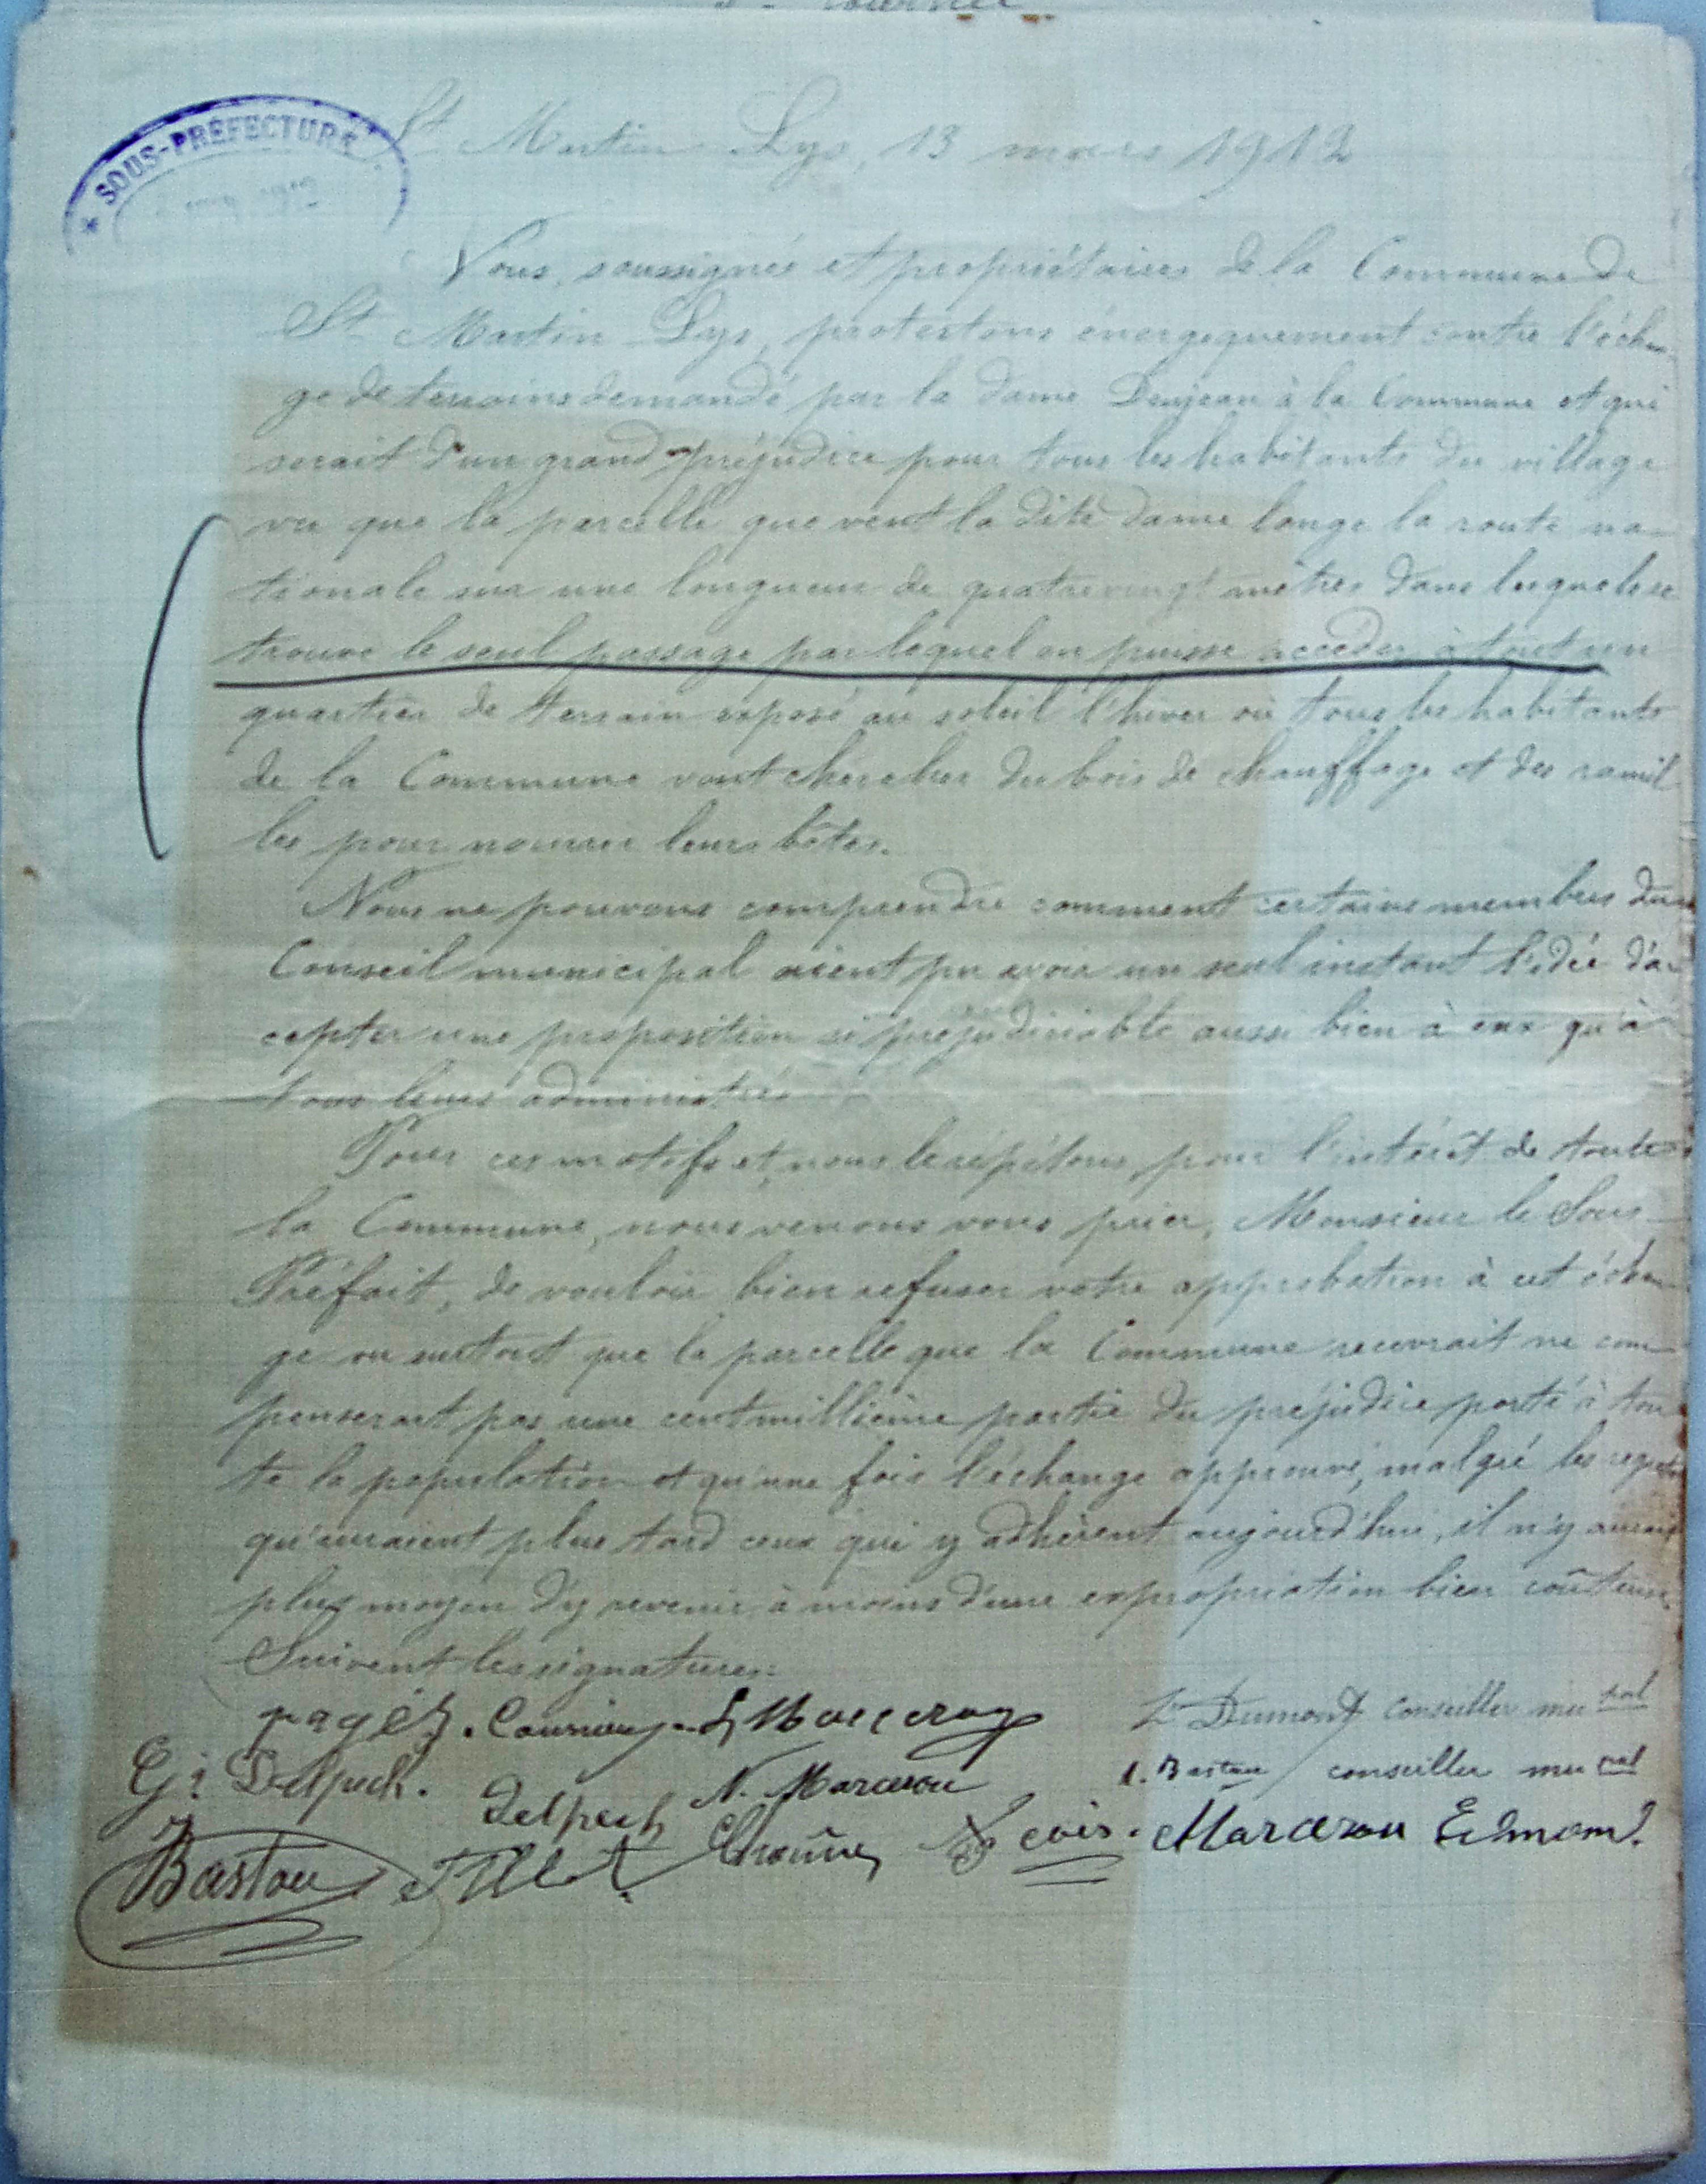 SOUS-PRÉFECTURE
St Martin Lys, 13 mars 1912
Nous, soussignés et propriétaires de la Commune de
St Martin Lys, protestons énergiquement contre l'échan
ge de terrains demandé par la dame Dujean à la Commune et qui
serait d'un grand préjudice pour tous les habitants du village
vu que la parcelle que veut la dite dame longe la route na-
tionale sur une longueur de quatre vingt mètres dans lesquels se
trouve le seul passage par lequel on puisse accéder à tout un
quartier de terrain exposé au soleil l'hiver où tous les habitants
de la Commune vont chercher du bois de chauffage et des ramil
les pour nourrir leurs bêtes.
Nous ne pouvons comprendre comment certains membres du
Conseil municipal aient pu avoir un seul instant l'idée d'ac
cepter une proposition si préjudiciable aussi bien à eux qu'à
tous leurs administrés
Pour ces motifs et, nous le répétons, pour l'intérêt de toute
la Commune, nous venons vous prier, Monsieur le Sous-
Préfait, de vouloir bien refuser votre approbation à cet échan
ge vu surtout que la parcelle que la Commune recevrait ne com
penserait pas une centmillième partie du préjudice porté à tou
te la population et qu'une fois l'échange approuvé, malgré les regrets
qu'auraient plus tard ceux qui y adhèrent aujourd'hui, il n'y aurait
plus moyen d'y revenir à moins d'une expropriation bien coûteuse.
Suivent les signatures:
pagés.
Dumont conseiller mu pal
Gi Delpech. Delpech N. Marcerou
Bastou conseiller mu pal
Bastou
Marcerou Edmond